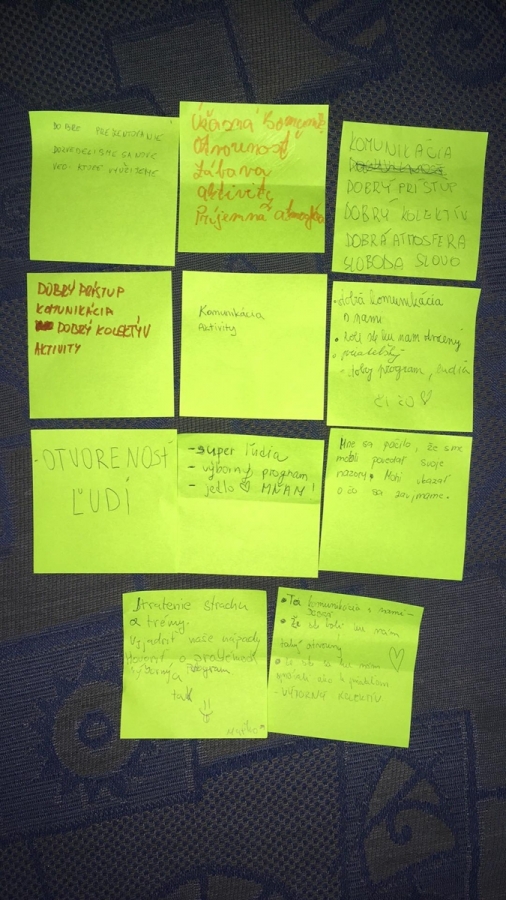 DOBRE PREZENTOVANIE
DOZVEDELI SME SA NOVÉ
VECI KTORÉ VYUŽIJEME
Úžasná
Otvorenosť
Zábava
aktivity
Príjemná atmosféra
KOMUNIKÁCIA
DOBRÝ PRÍSTUP
DOBRÝ KOLEKTÍV
DOBRÁ ATMOSFÉRA
SLOBODA SLOVO
DOBRÝ PRÍSTUP
KOMUNIKÁCIA
DOBRÝ KOLEKTÍV
AKTIVITY
Komunikácia
Aktivity
• dobá komunikácia
s nami
• boli ste ku nam otvorený
• priateľský
• dobý program, ľudia
čičo ♡
- OTVORENOSŤ
ĽUDÍ
- super ľudia
- výborný program
- jedlo ♡ MŇAM!
Mne sa páčilo, že sme
mohli povedať svoje
názory. Mohli ukázať
o čo sa zaujímame.
Stratenie strachu
a trémy.
Vyjadriť naše nápady
Hovoriť o problémoch
Výborný program
• Tá komunikácia s nami -
• Že ste boli ku nám
taký otvorený
• že ste sa ku nám
správali ako k
- VÝBORNÝ KOLEKTÍV